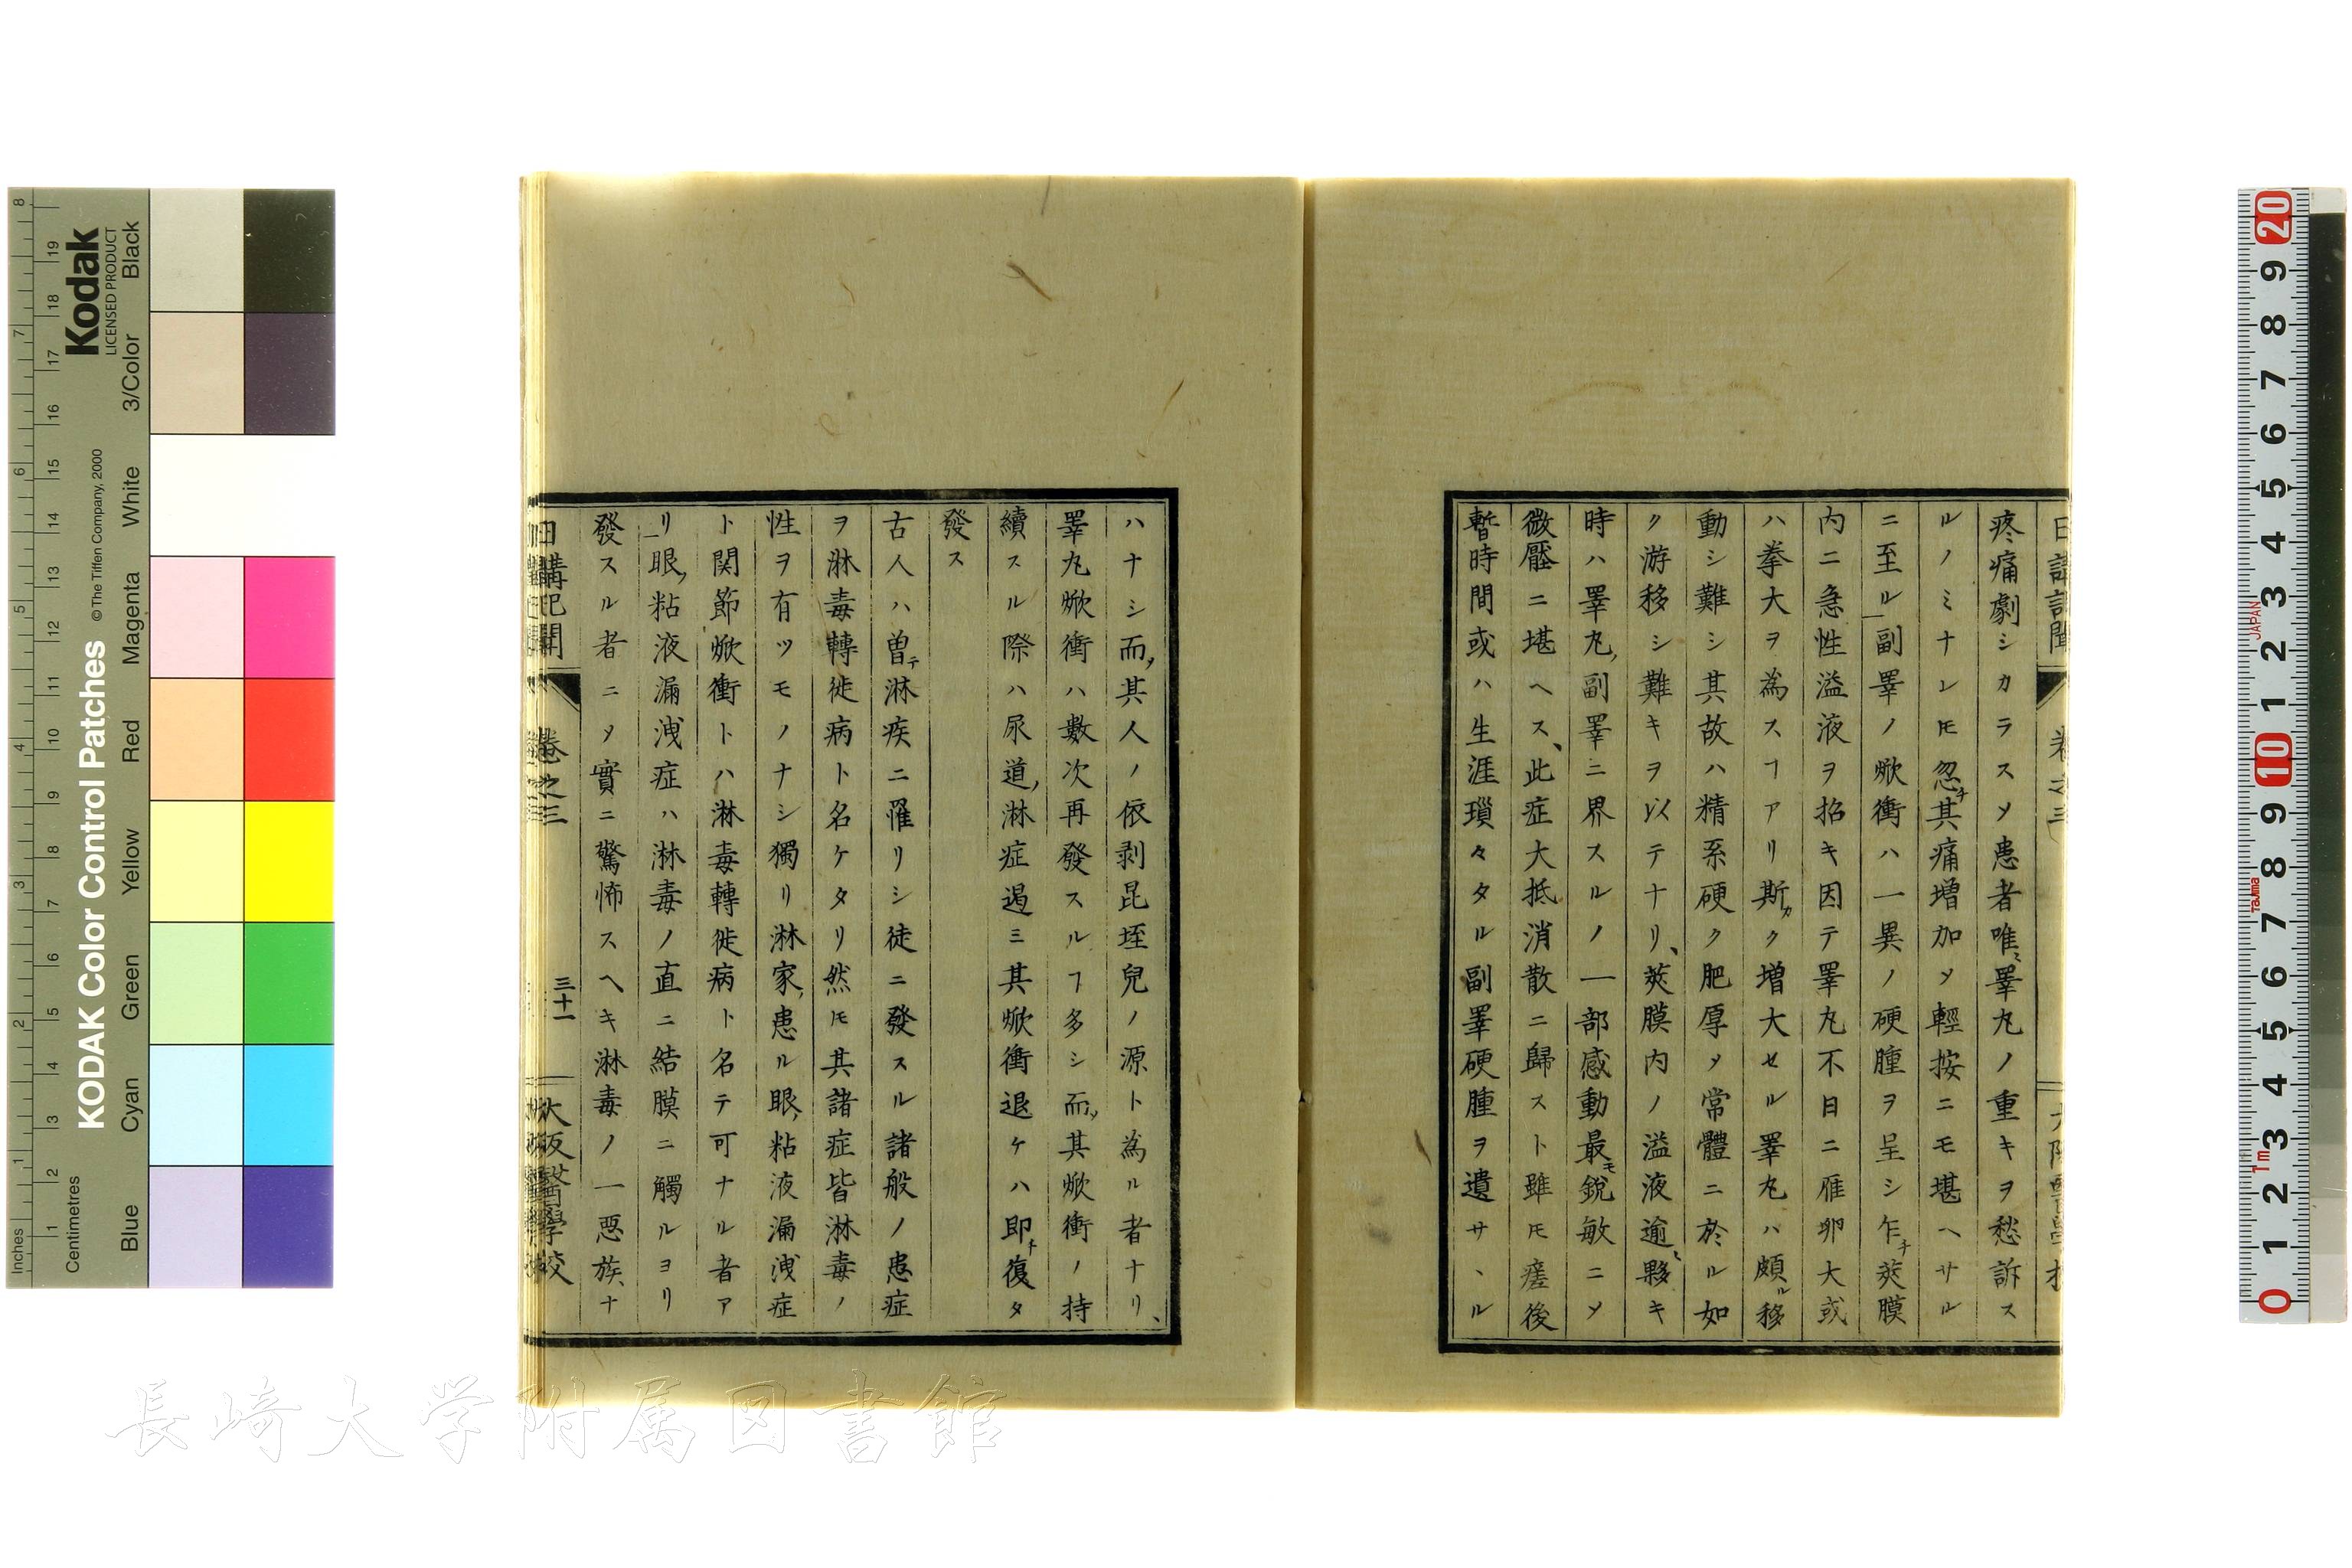 日講記聞 卷之三 大阪醫學校
疼痛劇シカラスメ患者唯々睪丸ノ重キヲ愁訴ス
ルノミナレ𪜈忽チ其痛増加メ輕按ニモ堪ヘサル
ニ至ル副睪ノ焮衝ハ一異ノ硬腫ヲ呈シ乍チ莢膜
内ニ急性溢液ヲ招キ因テ睪丸不日ニ雁卵大或
ハ拳大ヲ為スヿアリ斯カク増大セル睪丸ハ頗ル移
動シ難シ其故ハ精系硬ク肥厚メ常體ニ於ル如
ク游移シ難キヲ以テナリ、莢膜内ノ溢液逾々夥キ
時ハ睪丸,副睪ニ界スルノ一部感動最モ銳敏ニメ
微壓ニ堪ヘス、此症大抵消散ニ歸スト雖𪜈瘥後
暫時間或ハ生涯瑣々タル副睪硬腫ヲ遺サヽル
ハナシ而メ其人ノ依剥昆垤兒ノ源ト為ル者ナリ、
睪丸焮衝ハ數次再發スルヿ多シ而メ其焮衝ノ持
續スル際ハ尿道,淋症遏ミ其焮衝退ケハ即チ復タ
發ス
古人ハ曽テ淋疾ニ罹リシ徒ニ發スル諸般ノ患症
ヲ淋毒轉徙病ト名ケタリ然𪜈其諸症皆淋毒ノ
性ヲ有ツモノナシ獨リ淋家,患ル眼,粘液漏洩症
ト関節焮衝トハ淋毒轉徙病ト名テ可ナル者ア
リ眼,粘液漏洩症ハ淋毒ノ直ニ結膜ニ觸ルヨリ
發スル者ニメ實ニ驚怖スヘキ淋毒ノ一悪族ナ
日講記聞 卷之三 三十一 大阪醫學校
長崎大学附属図書館
Kodak
LICENSED PRODUCT
KODAK Color Control Patches
© The Tiffen Company, 2000
Inches
Centimetres
Blue Cyan Green Yellow Red Magenta White 3/Color Black
1 2 3 4 5 6 7 8
1 2 3 4 5 6 7 8 9 10 11 12 13 14 15 16 17 18 19
0 1 2 3 4 5 6 7 8 9 10 1 2 3 4 5 6 7 8 9 20
1m Tajima JAPAN